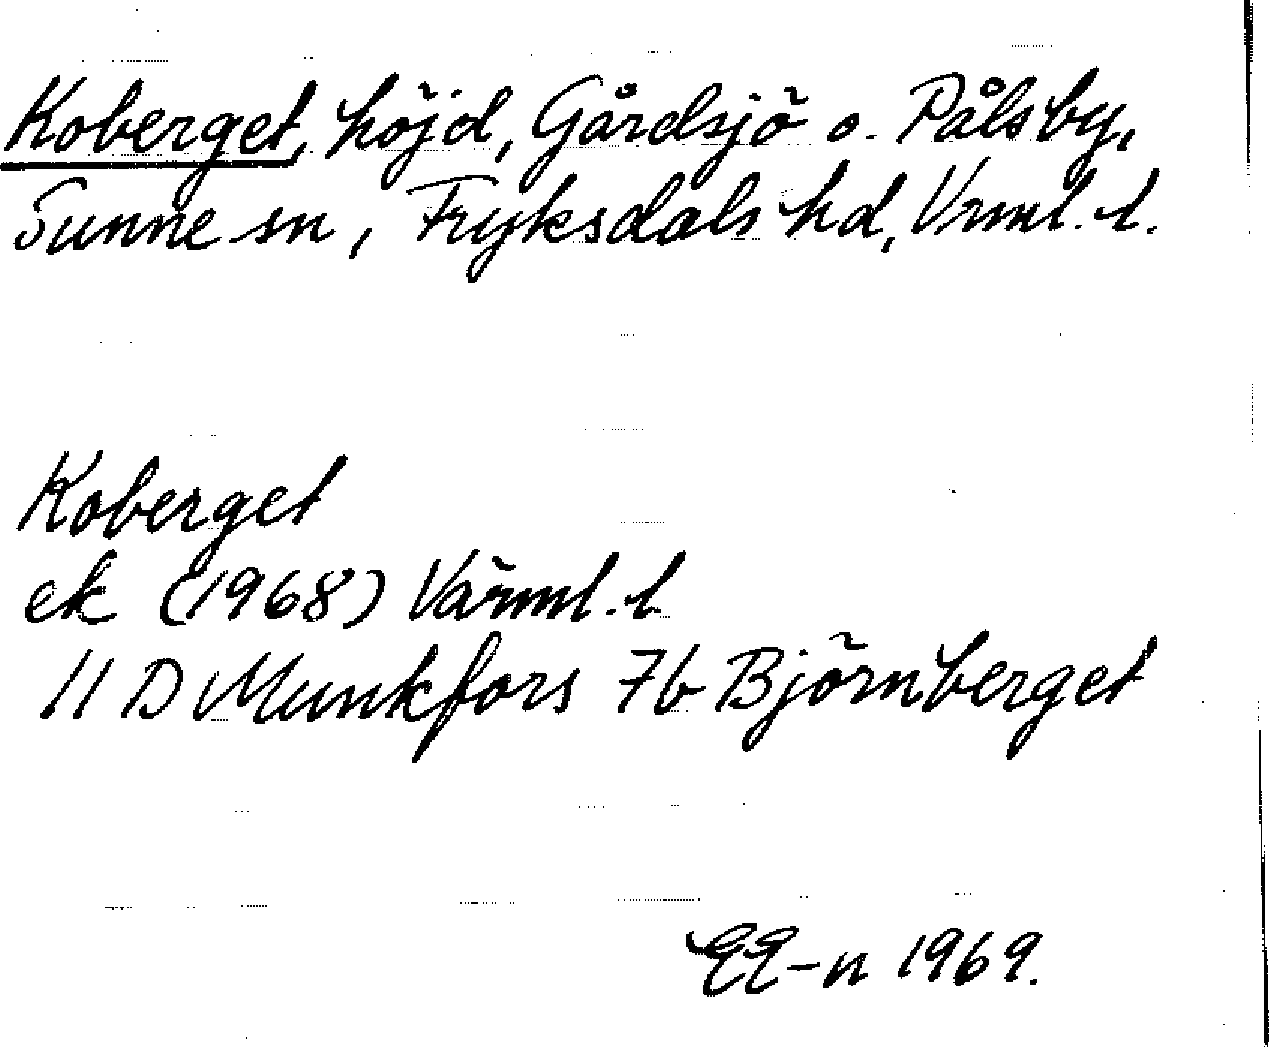 Koberget, höjd, Gårdsjö o. Pålsby,
Sunne sn, Fryksdals hd, Vrml. l.
Koberget
ek (1968) Värml. l.
11 D Munkfors 7b Björnberget
EE-n 1969.